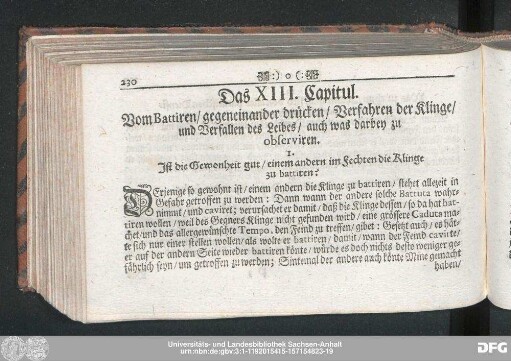 230
:) o (:
Das XIII. Capitul.
Vom Battiren/ gegeneinander drücken/ Verfahren der Klinge/
und Verfallen des Leibes/ auch was darbey zu
observiren.
1.
Ist die Gewonheit gut/ einem andern im Fechten die Klinge
zu battiren?
DErjenige so gewohnt ist/ einem andern die Klinge zu battiren/ stehet allezeit in
Gefahr getroffen zu werden: Dann wann der andere solche Battuta wahr-
nimmt/ und caviret; verursachet er damit/ daß die Klinge dessen/ so da hat bat-
tiren wollen/ weil des Gegners Klinge nicht gefunden wird/ eine grössere Caduta ma-
chet/ und das allergewünschte Tempo, den Feind zu treffen/ gibet: Gesetzt auch/ es hät-
te sich nur einer stellen wollen/ als wolte er battiren/ damit/ wann der Feind cavirte/
er auf der andern Seite wieder battiren könte/ würde es doch nichts desto weniger ge-
fährlich seyn/ um getroffen zu werden; Sintemal der andere auch könte Mine gemacht
haben/
Universitäts- und Landesbibliothek Sachsen-Anhalt
urn:nbn:de:gbv:3:1-1192015415-157154833-19
DFG